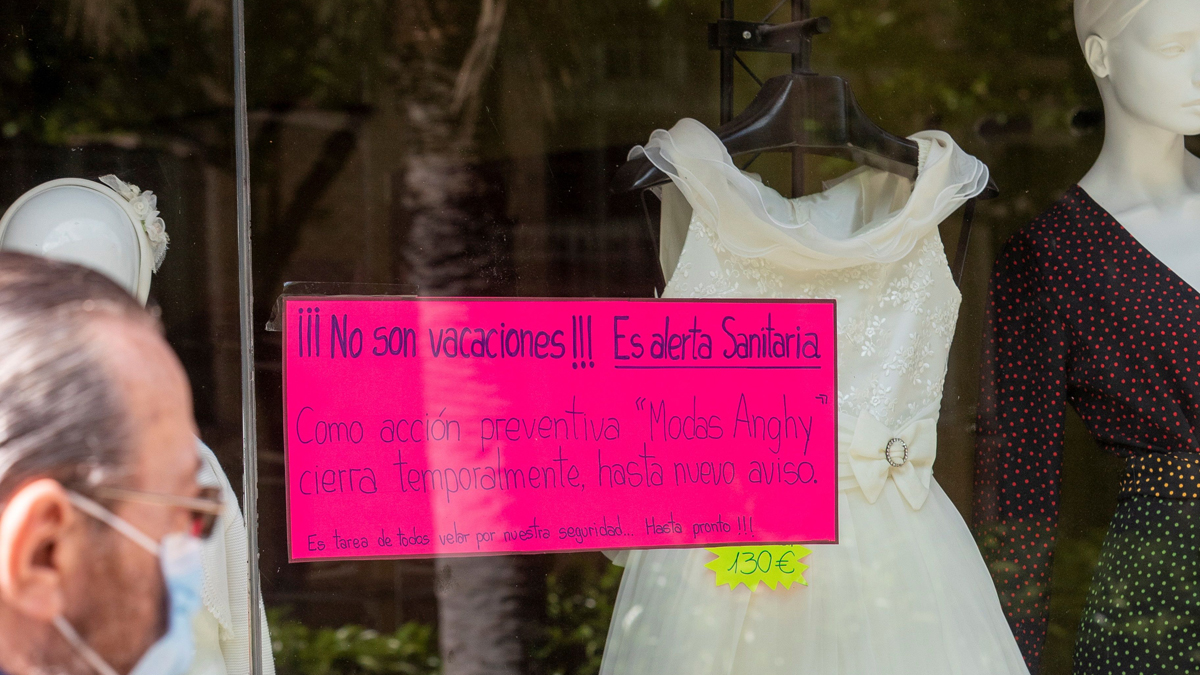 ¡¡¡No son vacaciones!!! Es alerta Sanitaria
Como acción preventiva "Modas Anghy"
cierra temporalmente, hasta nuevo aviso.
Es tarea de todos velar por nuestra seguridad... Hasta pronto!!!
130€